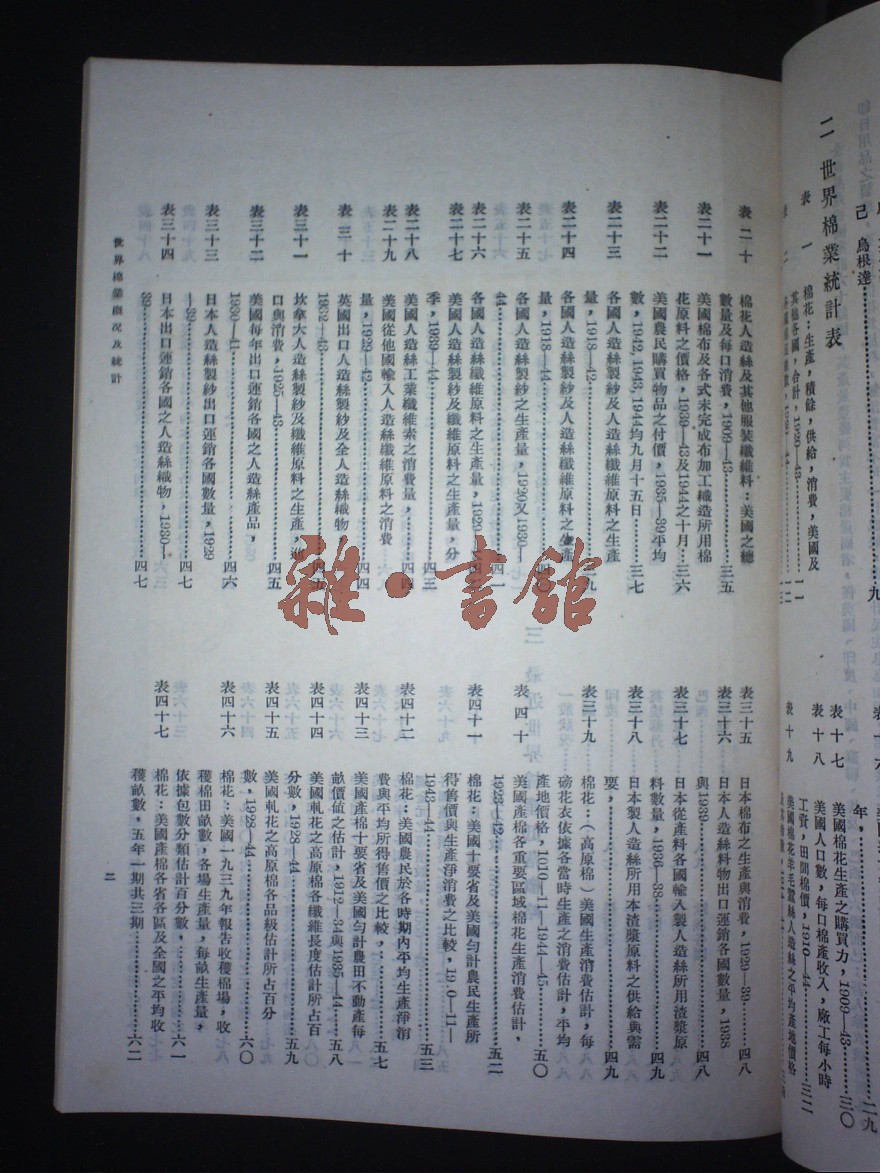 二 世界棉業統計表
己 烏根達
九
表 一 棉花：生產，積餘，供給，消費，美國及
其他各國，合計，1920—43 一一
年， 二九
表十七 美國棉花生產之購買力，1909—43 三〇
表十八 美國人口數，每口棉產收入，廠工每小時
工資，田間棉價，1910—44 三二
表十九 美國棉花羊毛蠶絲人造絲之平均產地價格
表二十 棉花人造絲及其他服裝纖維料：美國之總
數量及每口消費，1909—43 三五
表二十一 美國棉布及各式未完成布加工織造所用棉
花原料之價格，1939—43及1944之十月 三六
表二十二 美國農民購買物品之付價，1935—39平均
數，1942, 1943, 1944均九月十五日 三七
表二十三 各國人造絲製紗及人造絲纖維原料之生產
量，1918—42 三九
表二十四 各國人造絲製紗及人造絲纖維原料之生產
量，1918—44 四〇
表二十五 各國人造絲製紗之生產量，1920又1930—
44 四一
表二十六 各國人造絲纖維原料之生產量，
表二十七 美國人造絲製紗及纖維原料之生產量，分
季，1939—44 四三
表二十八 美國人造絲工業纖維素之消費量， 四四
表二十九 美國從他國輸入人造絲纖維原料之消費
量， 四四
表三十 英國出口人造絲製紗及全人造絲織物
四五
表三十一 坎拿大人造絲製紗及纖維原料之生產，進
口與消費，1925—43 四五
表三十二 美國每年出口運銷各國之人造絲產品，
1930—41 四六
表三十三 日本人造絲製紗出口運銷各國數量，1929
—39 四七
表三十四 日本出口運銷各國之人造絲織物，1930—
39 四七
世界棉業概況及統計
表三十五 日本棉布之生產與消費，1929—39 四八
表三十六 日本人造絲料物出口運銷各國數量，1938
與1939 四八
表三十七 日本從產料各國輸入製人造絲所用渣漿原
料數量，1936—38 四九
表三十八 日本製人造絲所用本渣漿原料之供給與需
要， 四九
表三十九 棉花：（高原棉）美國生產消費估計，每
磅花衣依據各當時生產之消費估計，平均
產地價格，1910—11—1944—45 五〇
表四十 美國產棉各重要區域棉花生產消費估計，
1923—42 五二
表四十一 棉花：美國十要省及美國勻計農民生產所
得售價與生產淨消費之比較，
1943—44 五三
表四十二 棉花：美國農民於各時期內平均生產淨消
費與平均所得售價之比較， 五七
表四十三 美國產棉十要省及美國勻計農田不動產每
畝價值之估計，1912—34與1935—44 五八
表四十四 美國軋花之高原棉各纖維長度估計所占百
分數，1928—44 五九
表四十五 美國軋花之高原棉各品級估計所占百分
數，1928—44 六〇
表四十六 棉花：美國一九三九年報告收穫棉場，收
穫棉田畝數，各場生產量，每畝生產量，
依據包數分類估計百分數， 六一
表四十七 棉花：美國產棉各省各區及全國之平均收
穫畝數，五年一期共三期 六二
二
雜·書館